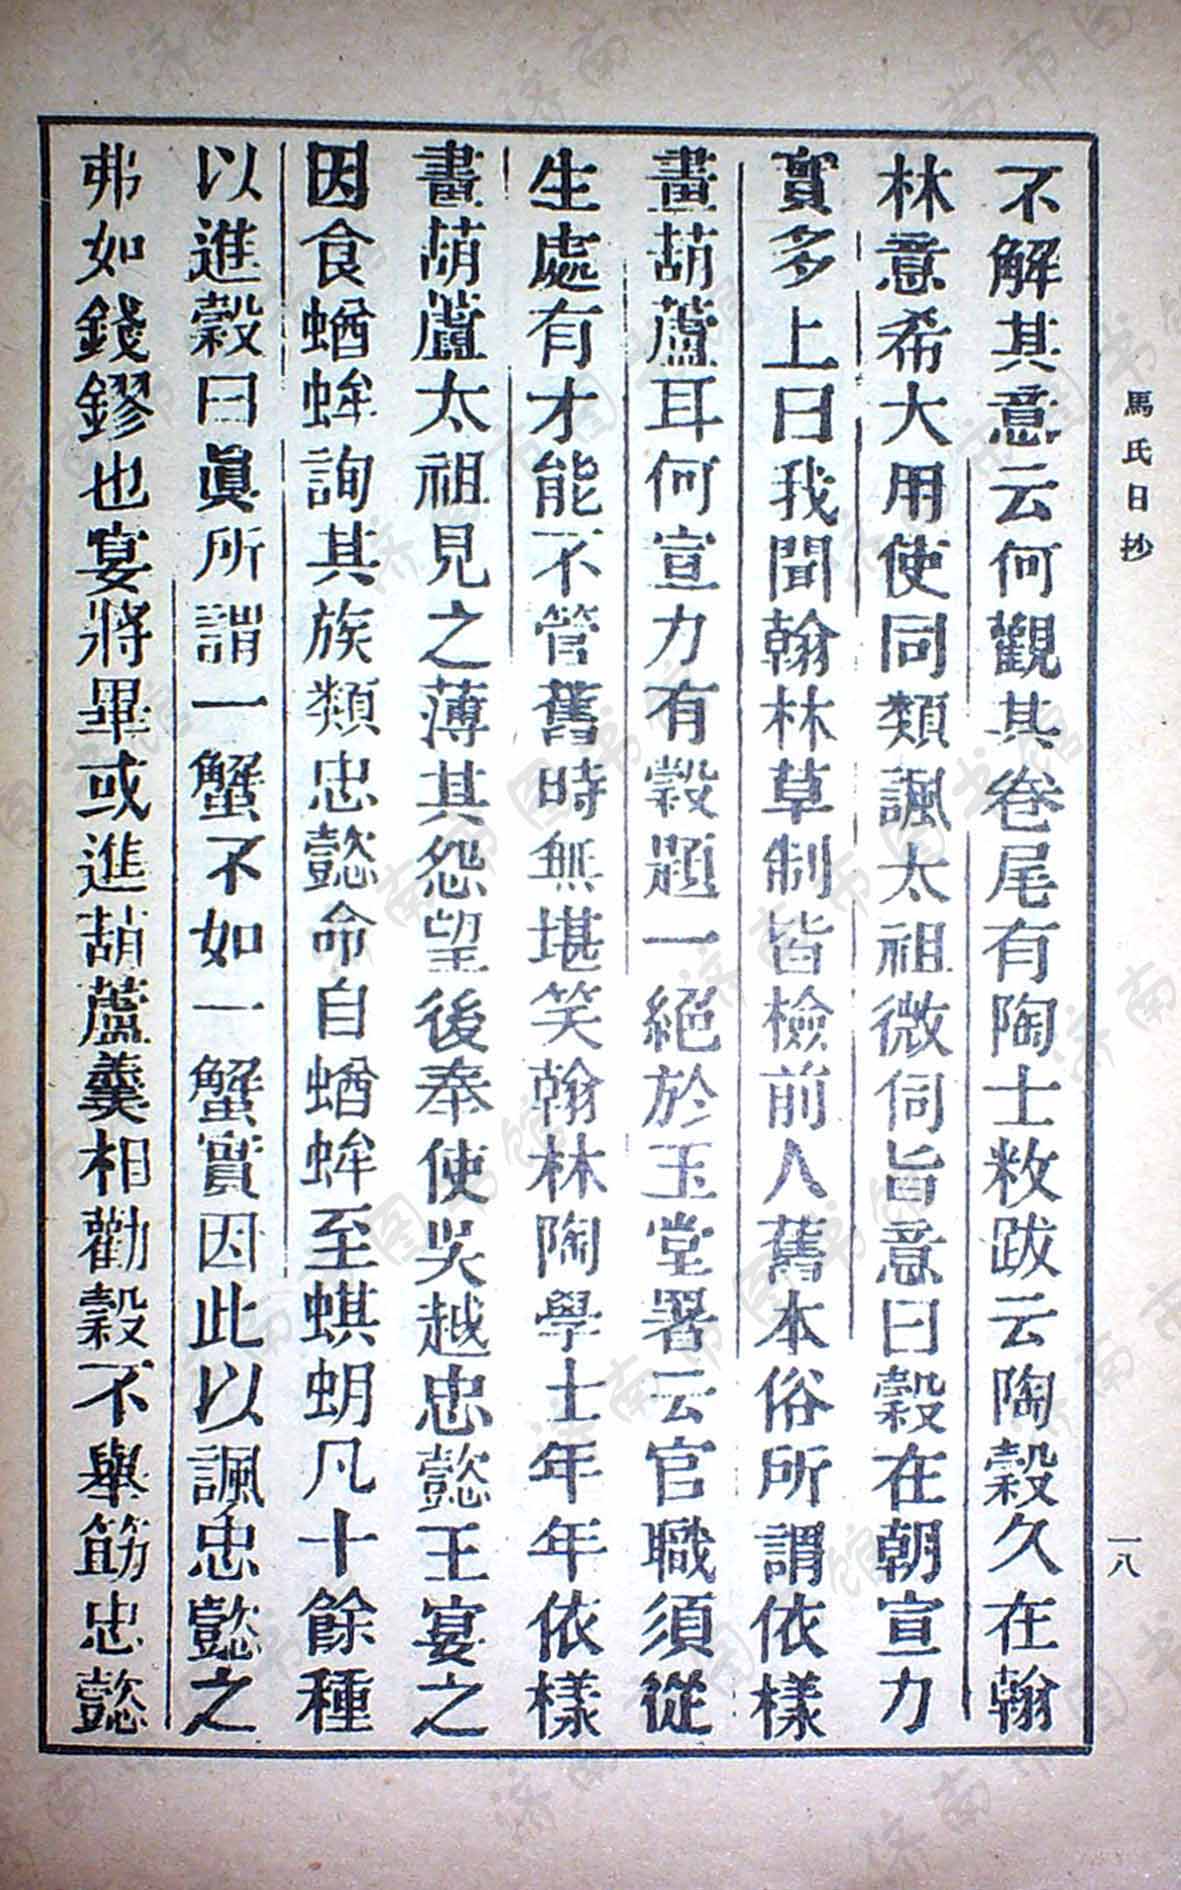 馬氏日抄
一八
不解其意云何觀其卷尾有陶士敕跋云陶穀久在翰
林意希大用使同類諷太祖微伺旨意曰穀在朝宣力
實多上曰我聞翰林草制皆檢前人舊本俗所謂依樣
畫葫蘆耳何宣力有穀題一絕於玉堂署云官職須從
生處有才能不管舊時無堪笑翰林陶學士年年依樣
畫葫蘆太祖見之薄其怨望後奉使吳越忠懿王宴之
因食蝤蛑詢其族類忠懿命自蝤蛑至蟛蚏凡十餘種
以進穀曰眞所謂一蟹不如一蟹實因此以諷忠懿之
弗如錢鏐也宴將畢或進葫蘆羹相勸穀不舉筯忠懿